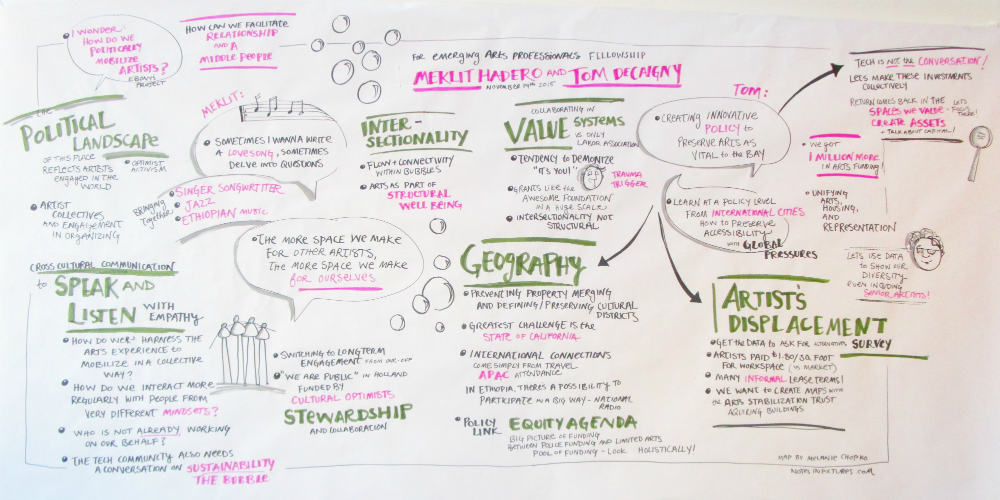 I WONDER:
HOW DO WE
POLITICALLY
MOBILIZE
ARTISTS?
EBONY'S
PROJECT
HOW CAN WE FACILITATE
RELATIONSHIP
AND A
MIDDLE PEOPLE
FOR EMERGING ARTS PROFESSIONALS FELLOWSHIP
MEKLIT HADERO AND TOM DECAIGNY
NOVEMBER 19TH 2015
THE
POLITICAL
LANDSCAPE
OF THIS PLACE
REFLECTS ARTISTS
ENGAGED IN THE
WORLD
OPTIMIST
ACTIVISM
ARTIST
COLLECTIVES
AND ENGAGEMENT
IN ORGANIZING
MEKLIT:
SOMETIMES I WANNA WRITE
A LOVESONG, SOMETIMES
DELVE INTO QUESTIONS
BRINGING
TOGETHER
SINGER SONGWRITER
JAZZ
ETHIOPIAN MUSIC
THE MORE SPACE WE MAKE
FOR OTHER ARTISTS,
THE MORE SPACE WE MAKE
FOR OURSELVES
CROSS CULTURAL COMMUNICATION
TO SPEAK AND
LISTEN WITH
EMPATHY
HOW DO WE HARNESS THE
ARTS EXPERIENCE TO
MOBILIZE IN A COLLECTIVE
WAY?
HOW DO WE INTERACT MORE
REGULARLY WITH PEOPLE FROM
VERY DIFFERENT MINDSETS?
WHO IS NOT ALREADY WORKING
ON OUR BEHALF?
THE TECH COMMUNITY ALSO NEEDS
A CONVERSATION ON SUSTAINABILITY
THE BUBBLE
SWITCHING TO LONGTERM
ENGAGEMENT FROM ONE-OFF
"WE ARE PUBLIC" IN HOLLAND
FUNDED BY
CULTURAL OPTIMISTS
STEWARDSHIP
AND COLLABORATION
INTER-
SECTIONALITY
FLOW + CONNECTIVITY
WITHIN BUBBLES
ARTS AS PART OF
STRUCTURAL
WELL BEING
COLLABORATING IN
VALUE SYSTEMS
IS ONLY
LABOR ASSOCIATION
TENDENCY TO DEMONIZE
"IT'S YOU!"
TRAUMA
TRIGGER
GRANTS LIKE THE
AWESOME FOUNDATION
IN A HUGE SCALE
INTERSECTIONALITY NOT
STRUCTURAL
GEOGRAPHY
PREVENTING PROPERTY MERGING
AND DEFINING/PRESERVING CULTURAL
DISTRICTS
GREATEST CHALLENGE IS THE
STATE OF CALIFORNIA
INTERNATIONAL CONNECTIONS
COME SIMPLY FROM TRAVEL
APAC ATTENDANCE
IN ETHIOPIA, THERE'S A POSSIBILITY TO
PARTICIPATE IN A BIG WAY - NATIONAL
RADIO
POLICY
LINK
EQUITY AGENDA
BIG PICTURE OF FUNDING
BETWEEN POLICE FUNDING AND LIMITED ARTS
POOL OF FUNDING - LOOK HOLISTICALLY!
TOM:
CREATING INNOVATIVE
POLICY TO
PRESERVE ARTS AS
VITAL TO THE BAY
LEARN AT A POLICY LEVEL
FROM INTERNATIONAL CITIES
HOW TO PRESERVE
ACCESSIBILITY
WITH GLOBAL
PRESSURES
TECH IS NOT THE CONVERSATION!
LETS MAKE THESE INVESTMENTS
COLLECTIVELY
RETURN COMES BACK IN THE
SPACES WE VALUE -
CREATE ASSETS
+ TALK ABOUT CAPITAL!
LETS
FOCUS
THERE!
WE GOT
1 MILLION MORE
IN ARTS FUNDING!
UNIFYING
ARTS,
HOUSING,
AND
REPRESENTATION
LETS USE DATA
TO SHOW OUR
DIVERSITY
EVEN INCLUDING
SENIOR ARTISTS!
ARTIST'S
DISPLACEMENT
SURVEY
GET THE DATA TO ASK FOR ALTERNATIVES
ARTISTS PAID $1.80/SQ FOOT
FOR WORKSPACE (VS MARKET)
MANY INFORMAL LEASE TERMS!
WE WANT TO CREATE MAPS WITH
THE ARTS STABILIZATION TRUST
AQUIRING BUILDINGS
MAP BY MELANIE CHOPKO
NOTESINPICTURES.COM